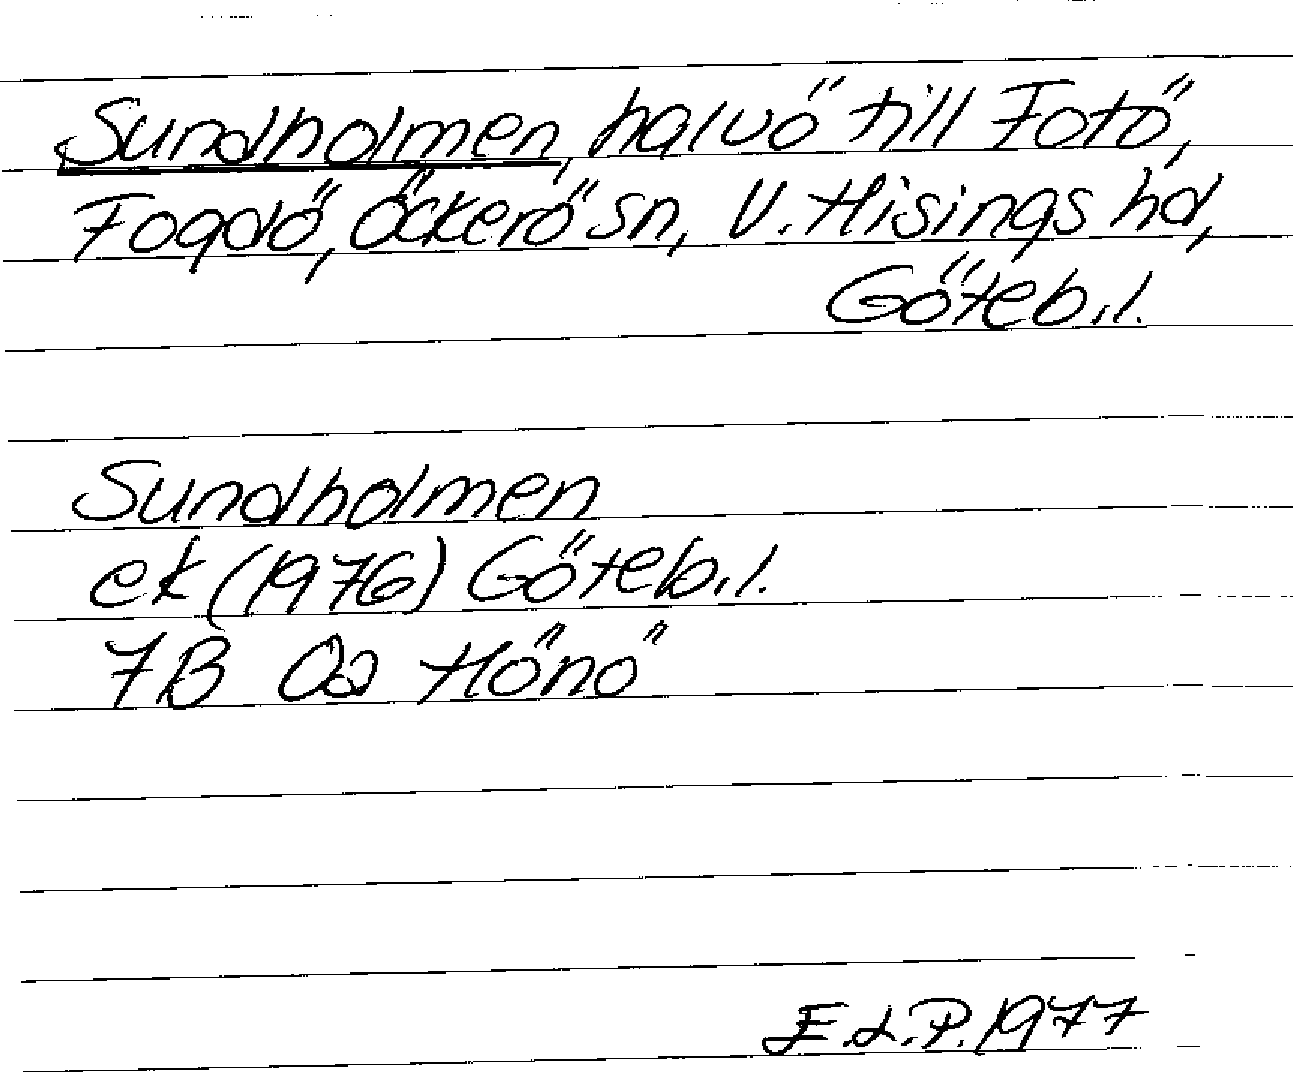 Sundholmen, halvö till Fotö,
Fogdö, Öckerö sn, V. Hisings hd,
Göteb.l.
Sundholmen
ek (1976) Göteb.l.
7B 0a Hönö
E.L.P. 1977